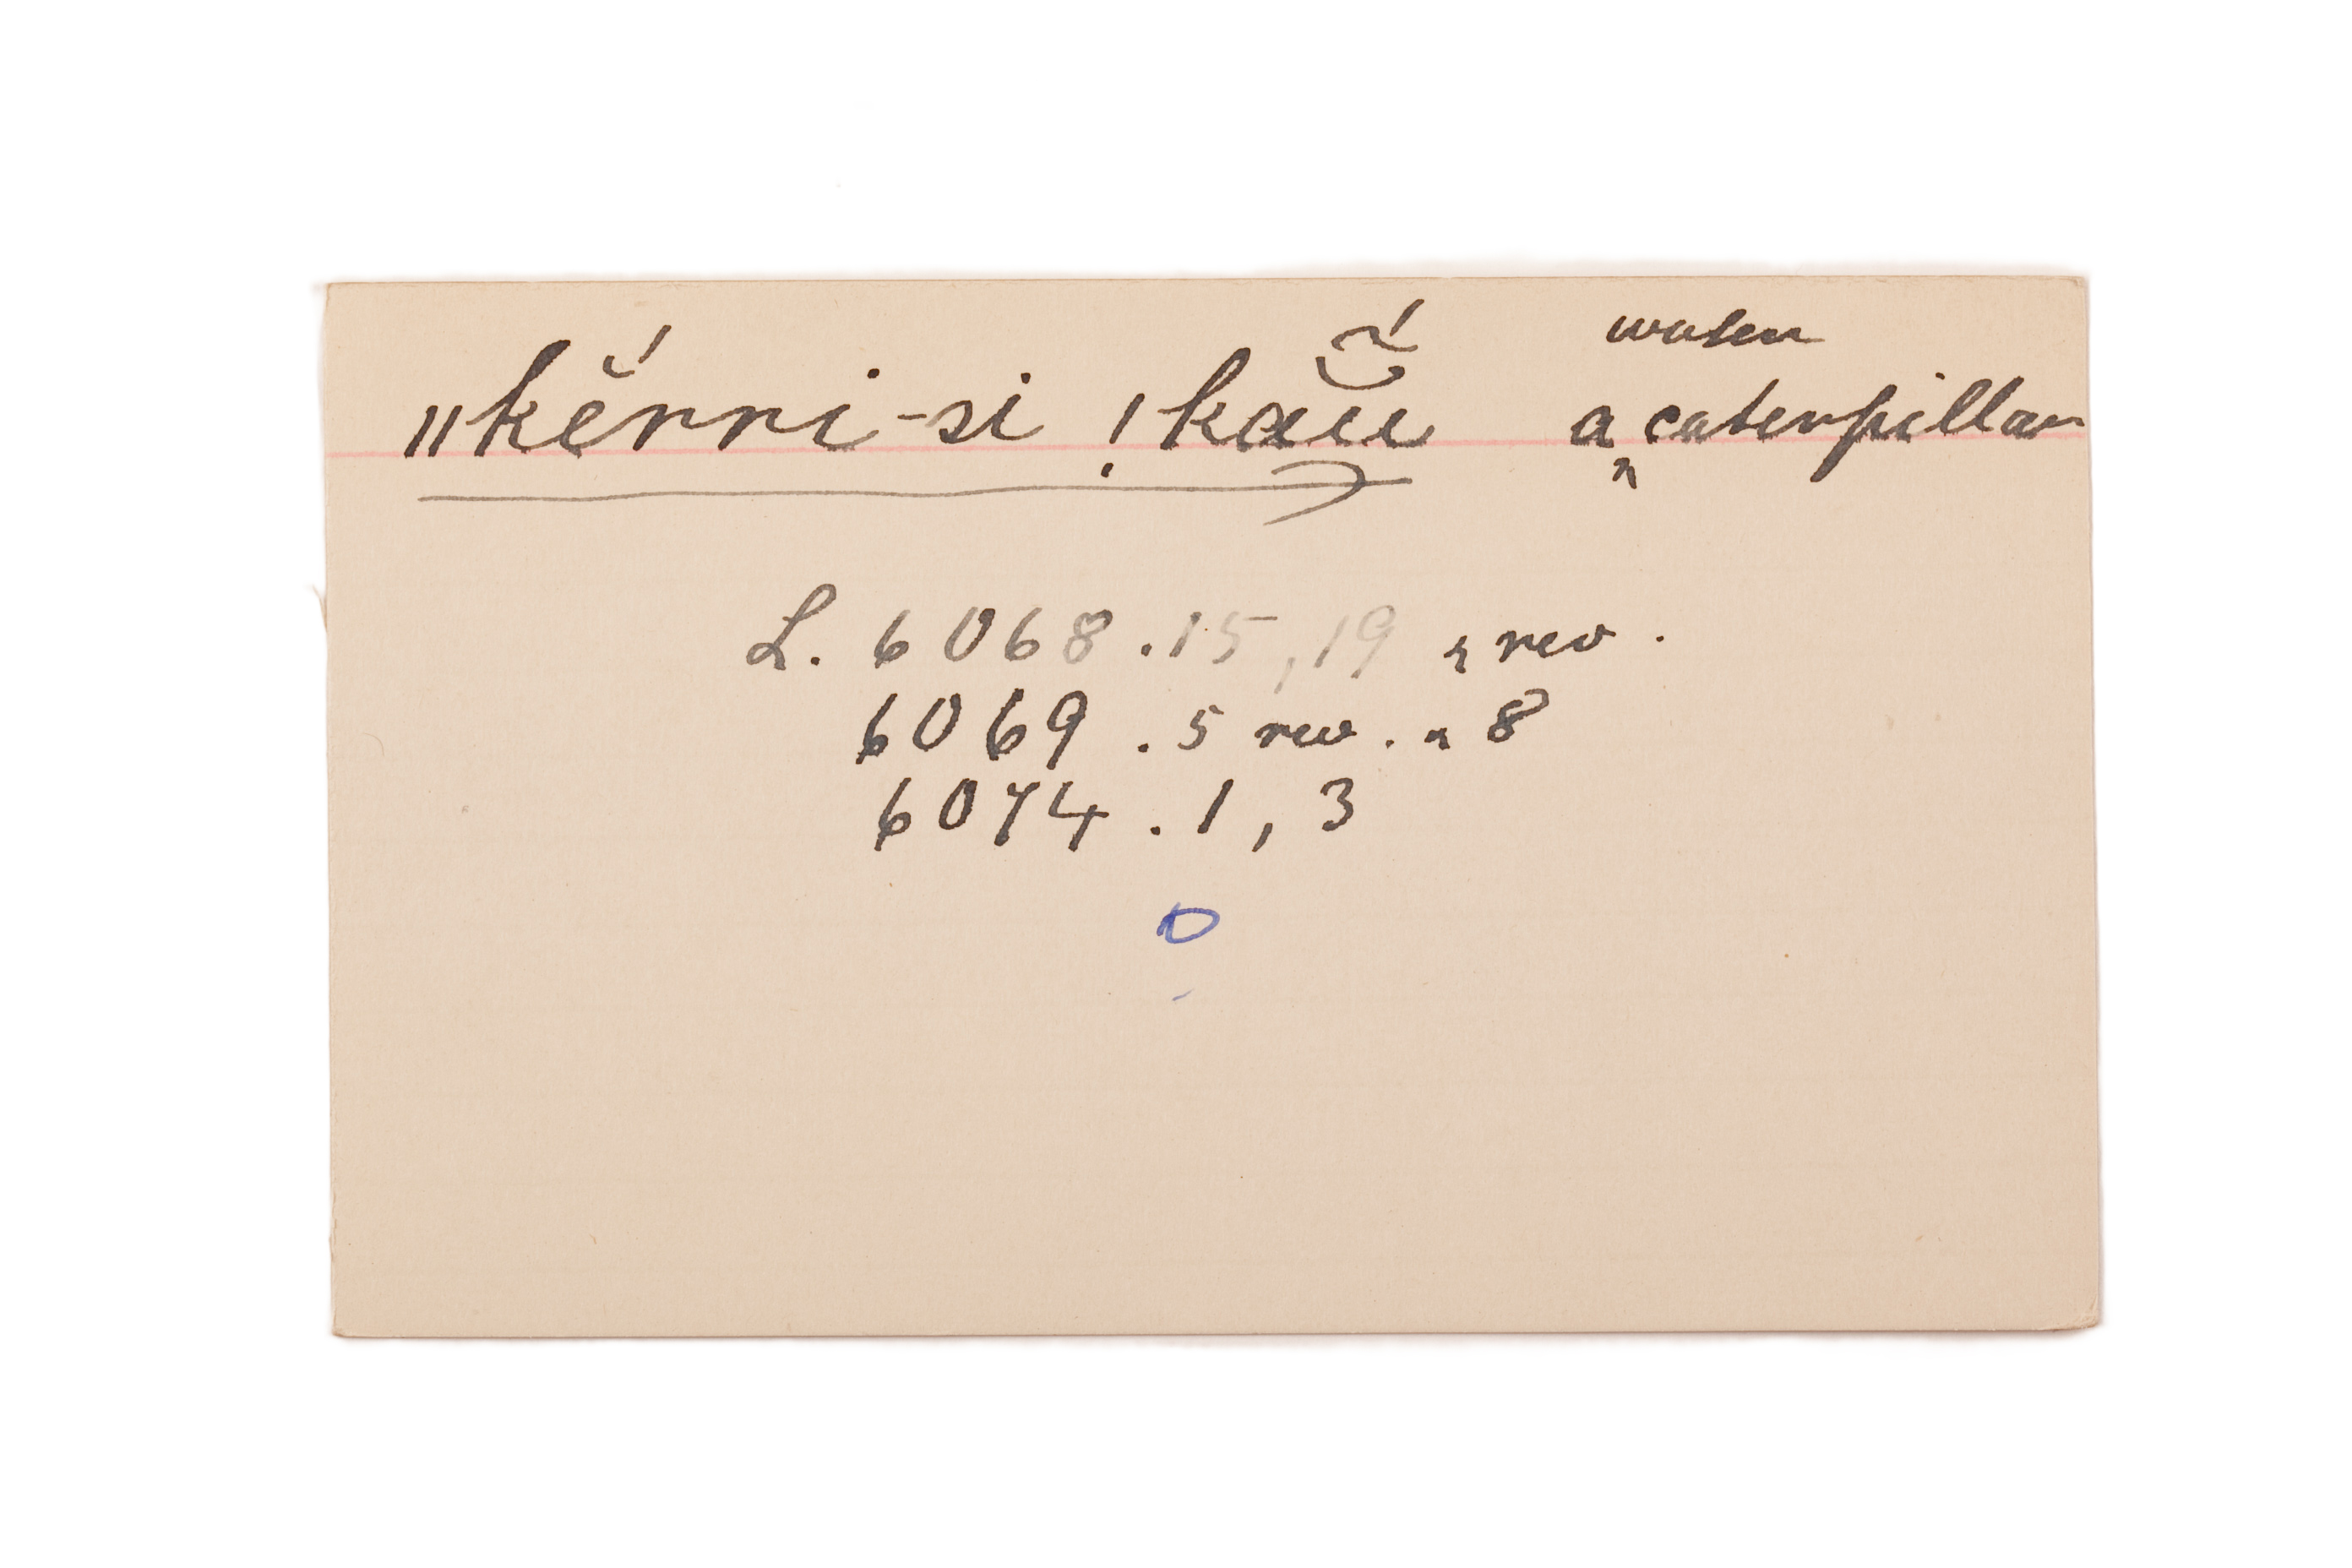 ǁkĕ́rri-si !kaŭ̃́ a water caterpillar
L. 6068.15,19 & rev.
6069.5 rev. & 8
6074.1,3